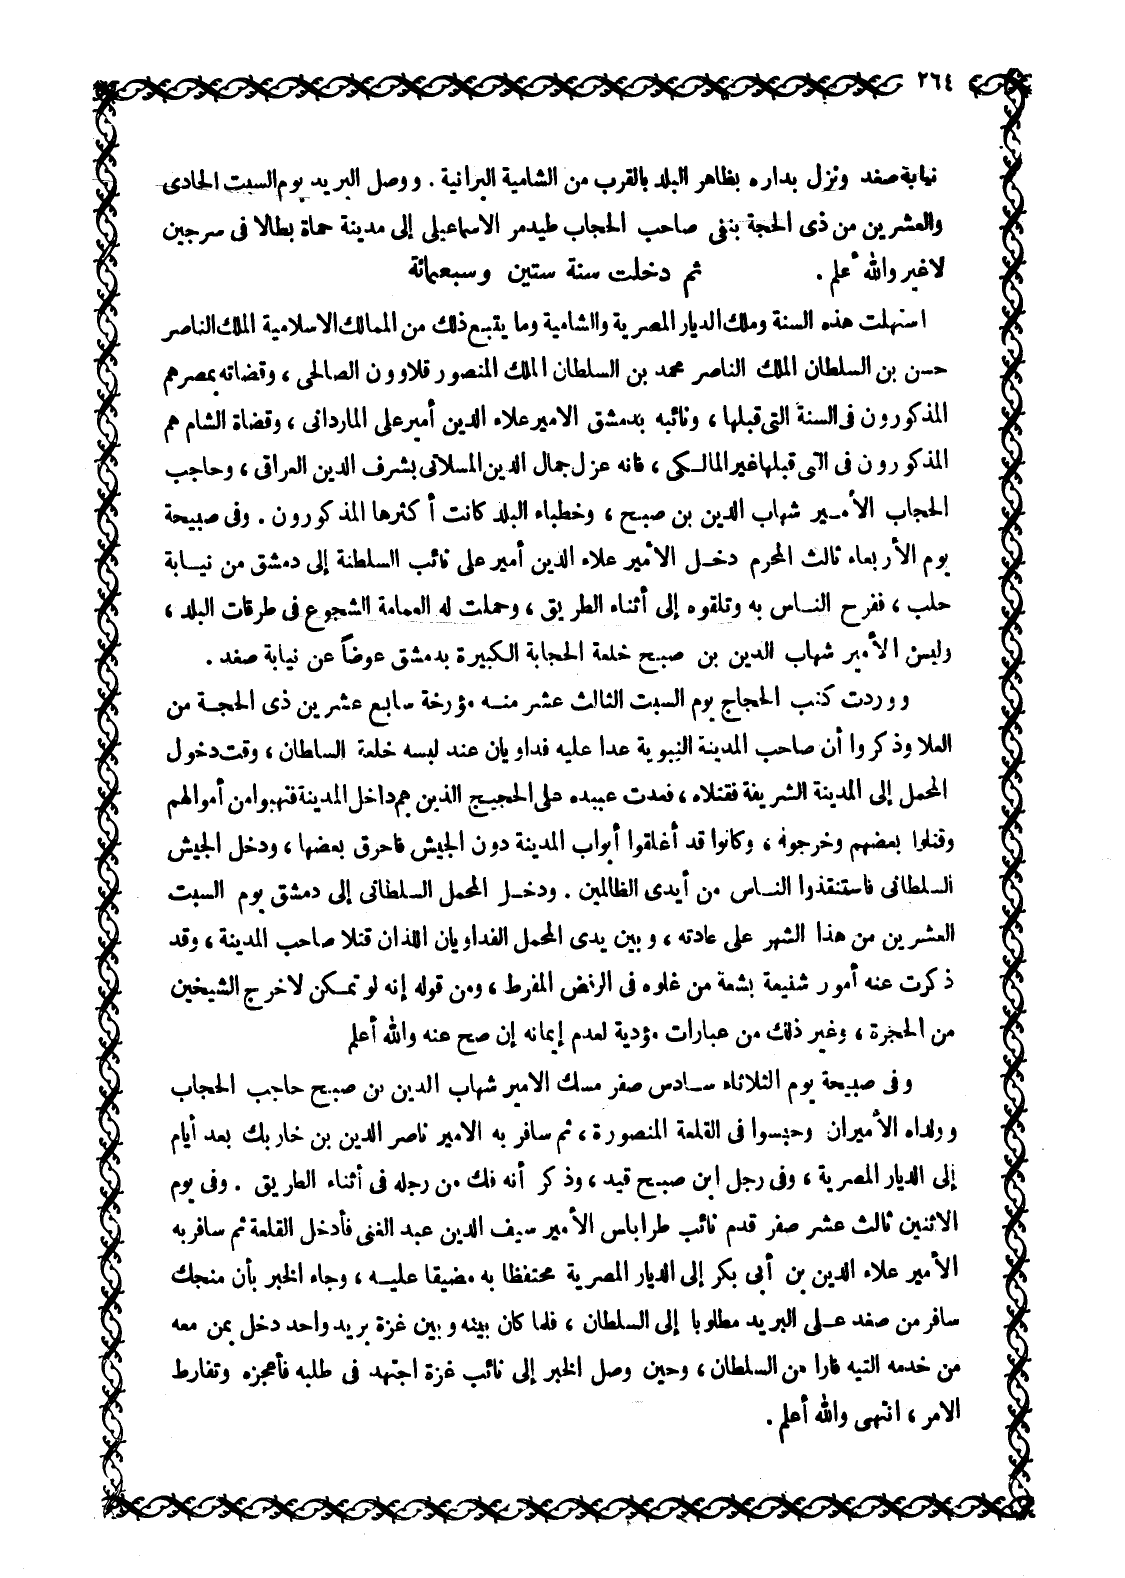 ٢٦٤
نيابة صفد ونزل بداره بظاهر البلد بالقرب من الشامية البرانية . ووصل البريد يوم السبت الحادى
والعشرين من ذى الحجة بنفى صاحب الحجاب طيدمر الاسماعيلى إلى مدينة حماة بطالا فى سرجين
لا غير والله أعلم .
ثم دخلت سنة ستين وسبعمائة
استهلت هذه السنة وملك الديار المصرية والشامية وما يتبع ذلك من الممالك الاسلامية الملك الناصر
حسن بن السلطان الملك الناصر محمد بن السلطان الملك المنصور قلاوون الصالحى ، وقضاته بمصر هم
المذكورون فى السنة التى قبلها ، ونائبه بدمشق الامير علاء الدين أمير على الماردانى ، وقضاة الشام هم
المذكورون فى التى قبلها غير المالكى ، فانه عزل جمال الدين المسلاتى بشرف الدين العراقى ، وحاجب
الحجاب الأمير شهاب الدين بن صبح ، وخطباء البلد كانت أكثرها المذكورون . وفى صبيحة
يوم الأربعاء ثالث المحرم دخل الأمير علاء الدين أمير على نائب السلطنة إلى دمشق من نيابة
حلب ، ففرح الناس به وتلقوه إلى أثناء الطريق ، وحملت له العمامة الشجوع فى طرقات البلد ،
وليس الأمير شهاب الدين بن صبح خلعة الحجابة الكبيرة بدمشق عوضاً عن نيابة صفد .
ووردت كتب الحجاج يوم السبت الثالث عشر منه مؤرخة سابع عشرين ذى الحجة من
العلا وذكروا أن صاحب المدينة النبوية عدا عليه فداويان عند لبسه خلعة السلطان ، وقت دخول
المحمل إلى المدينة الشريفة فقتلاه ، فعدت عبيده على الحجيج الذين هم داخل المدينة فنهبوا من أموالهم
وقتلوا بعضهم وخرجوه ، وكانوا قد أغلقوا أبواب المدينة دون الجيش فاحرق بعضها ، ودخل الجيش
السلطانى فاستنقذوا الناس من أيدى الظالمين . ودخل المحمل السلطانى إلى دمشق يوم السبت
العشرين من هذا الشهر على عادته ، وبين يدى المحمل الفداويان اللذان قتلا صاحب المدينة ، وقد
ذكرت عنه أمور شنيعة بشعة من غلوه فى الرفض المفرط ، ومن قوله إنه لو تمكن لاخرج الشيخين
من الحجرة ، وغير ذلك من عبارات مؤدية لعدم إيمانه إن صح عنه والله أعلم
وفى صبيحة يوم الثلاثاء سادس صفر مسك الامير شهاب الدين بن صبح حاجب الحجاب
وولداه الأميران وحبسوا فى القلعة المنصورة ، ثم سافر به الامير ناصر الدين بن خاربك بعد أيام
إلى الديار المصرية ، وفى رجل ابن صبح قيد ، وذكر أنه فك من رجله فى أثناء الطريق . وفى يوم
الاثنين ثالث عشر صفر قدم نائب طرابلس الأمير سيف الدين عبد الغنى فأدخل القلعة ثم سافر به
الأمير علاء الدين بن أبى بكر إلى الديار المصرية محتفظا به مضيقا عليه ، وجاء الخبر بأن منجك
سافر من صفد على البريد مطلوبا إلى السلطان ، فلما كان بينه وبين غزة بريد واحد دخل بمن معه
من خدمه التيه فارا من السلطان ، وحين وصل الخبر إلى نائب غزة اجتهد فى طلبه فأعجزه وتفارط
الامر ، انتهى والله أعلم .